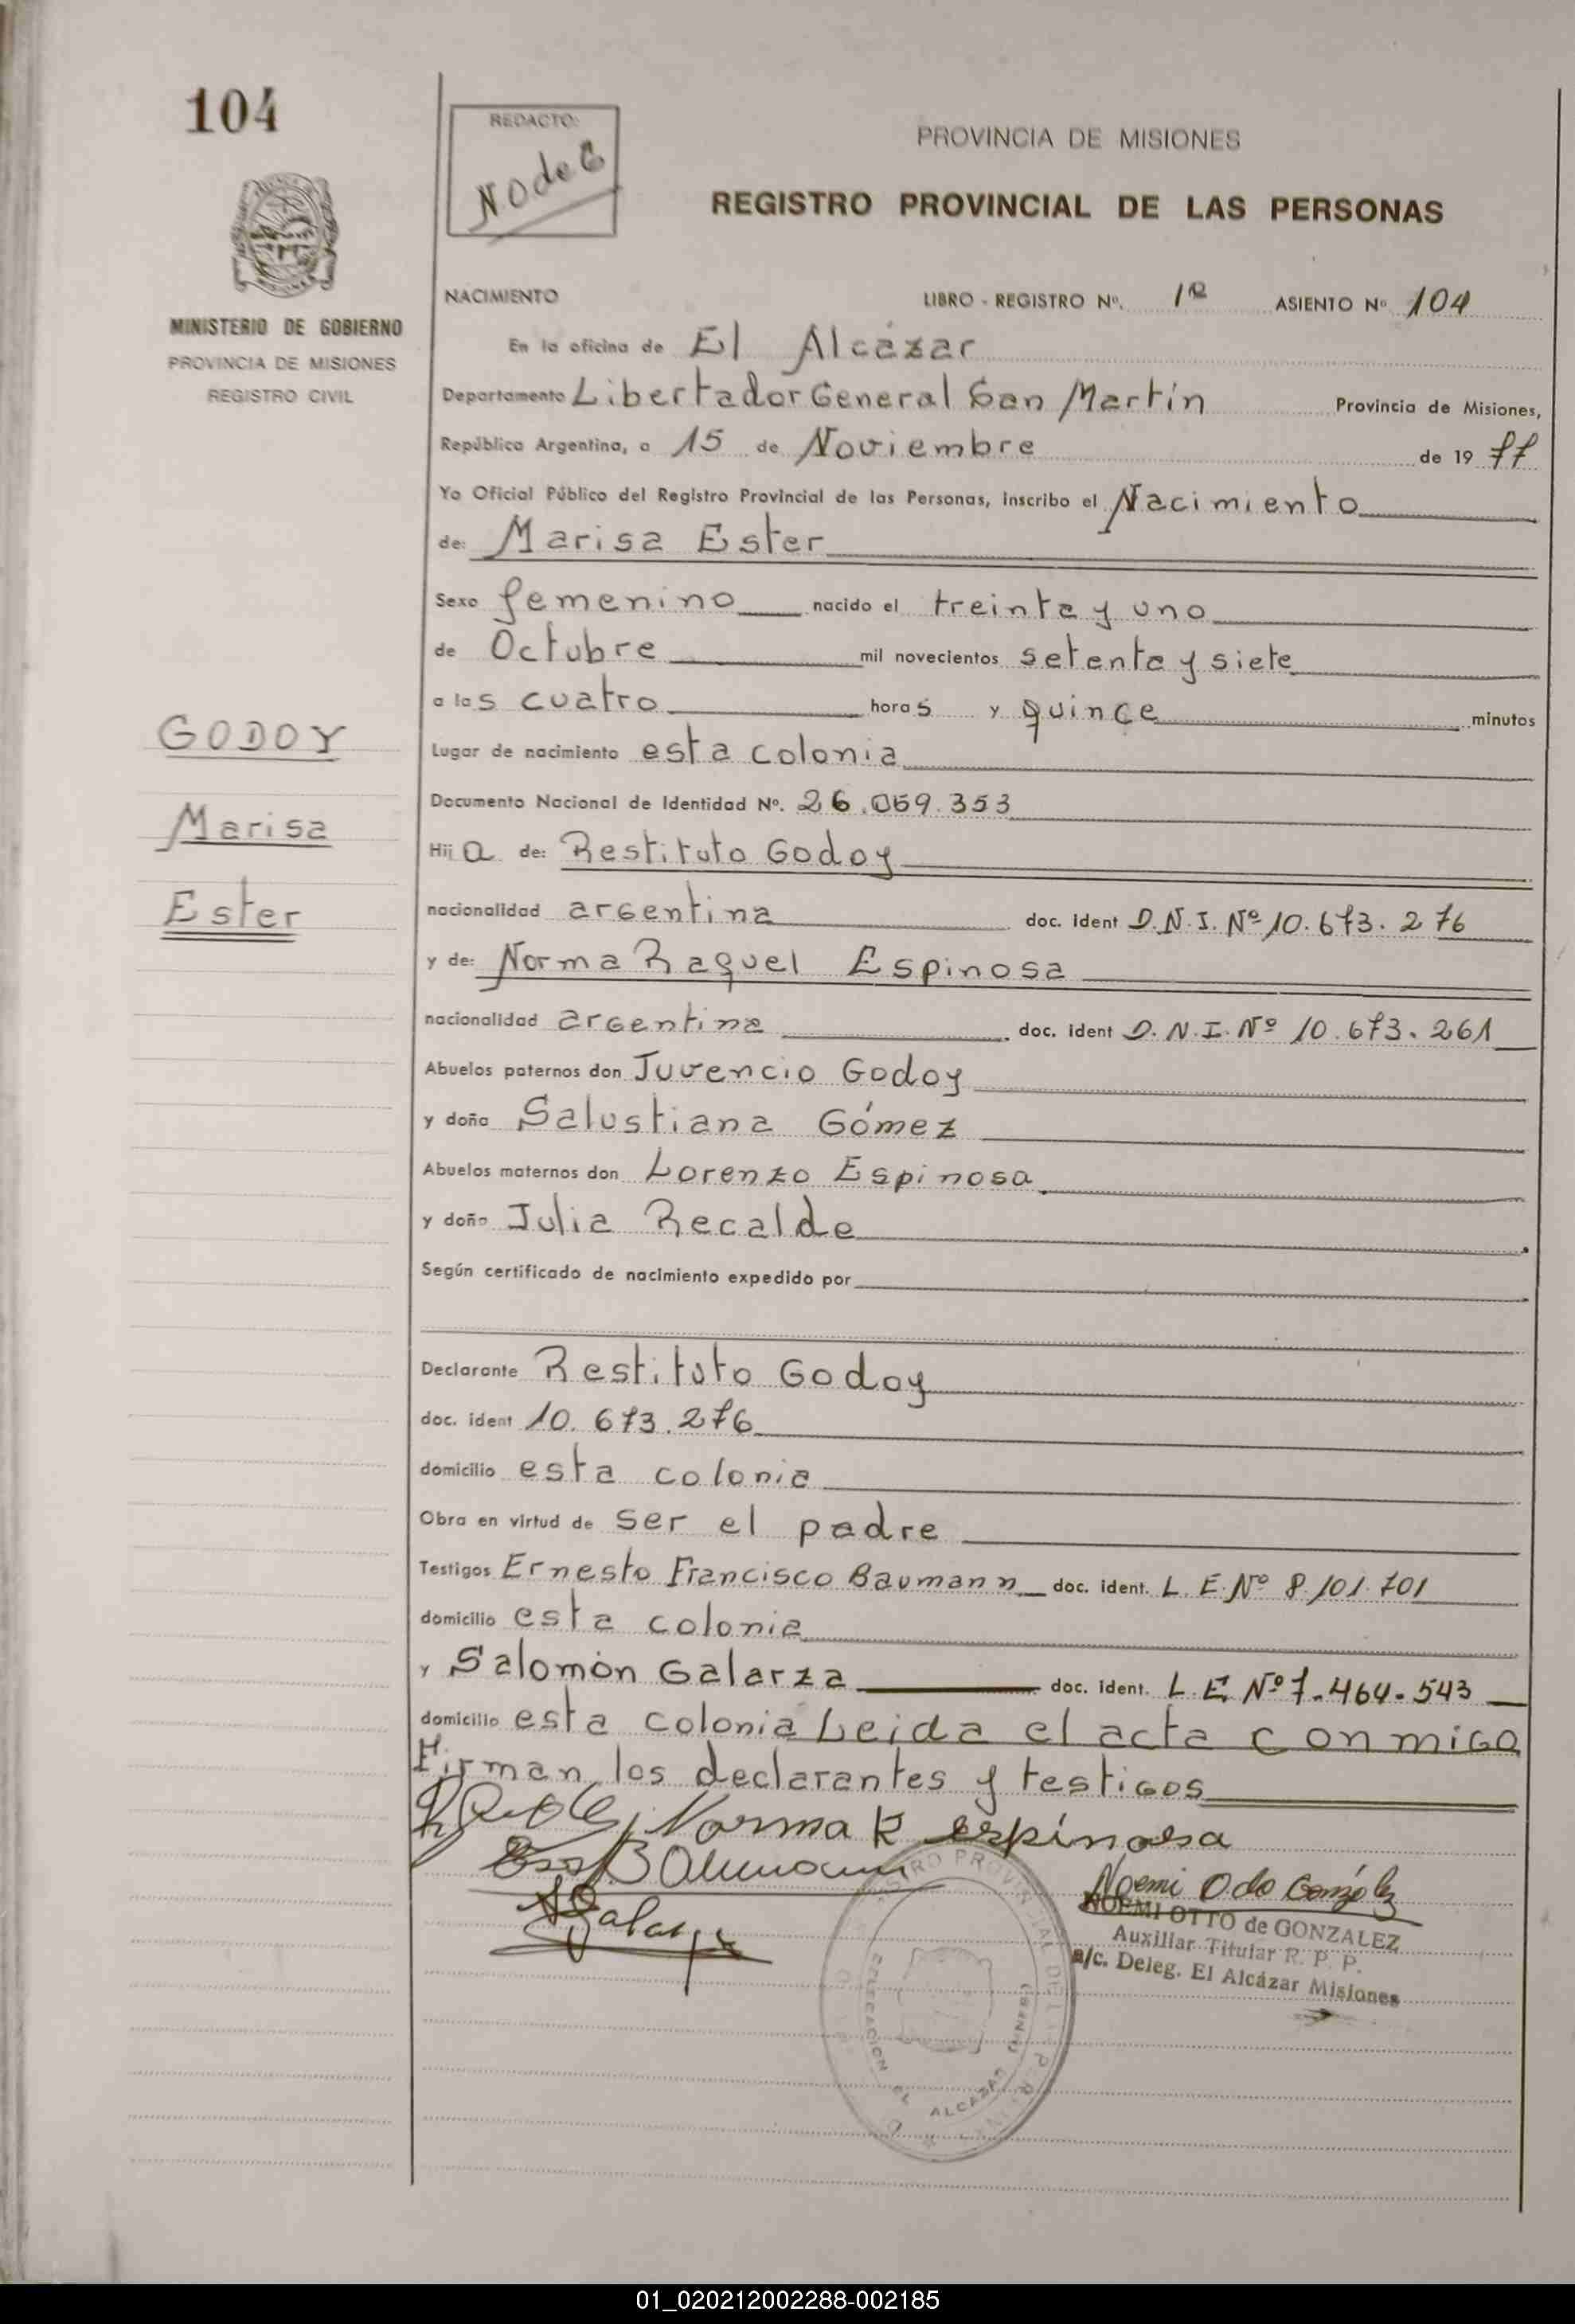 104
REDACTO:
N.O de G
MINISTERIO DE GOBIERNO
PROVINCIA DE MISIONES
REGISTRO CIVIL
GODOY
Marisa
Ester
PROVINCIA DE MISIONES
REGISTRO PROVINCIAL DE LAS PERSONAS
NACIMIENTO LIBRO - REGISTRO Nº. 1º ASIENTO Nº 104
En la oficina de El Alcázar
Departamento Libertador General San Martín Provincia de Misiones,
República Argentina, a 15 de Noviembre de 19 77
Yo Oficial Público del Registro Provincial de las Personas, inscribo el Nacimiento
de: Marisa Ester
Sexo femenino nacido el treinta y uno
de Octubre mil novecientos setenta y siete
a las cuatro horas y quince minutos
Lugar de nacimiento esta colonia
Documento Nacional de Identidad Nº. 26.059.353
Hija de: Restituto Godoy
nacionalidad argentina doc. ident D.N.I. Nº 10.673.276
y de: Norma Raquel Espinosa
nacionalidad argentina doc. ident D.N.I. Nº 10.673.261
Abuelos paternos don Juvencio Godoy
y doña Salustiana Gómez
Abuelos maternos don Lorenzo Espinosa
y doña Julia Recalde
Según certificado de nacimiento expedido por
Declarante Restituto Godoy
doc. ident 10.673.276
domicilio esta colonia
Obra en virtud de ser el padre
Testigos Ernesto Francisco Baumann doc. ident. L.E. Nº 8.101.701
domicilio esta colonia
y Salomón Galarza doc. ident. L.E. Nº 7.464.543
domicilio esta colonia Leida el acta conmigo
Firman los declarantes y testigos
Norma R Espinosa
Baumann
Galarza
NOEMI OTTO de GONZALEZ
Auxiliar Titular R. P. P.
a/c. Deleg. El Alcázar Misiones
01_020212002288-002185